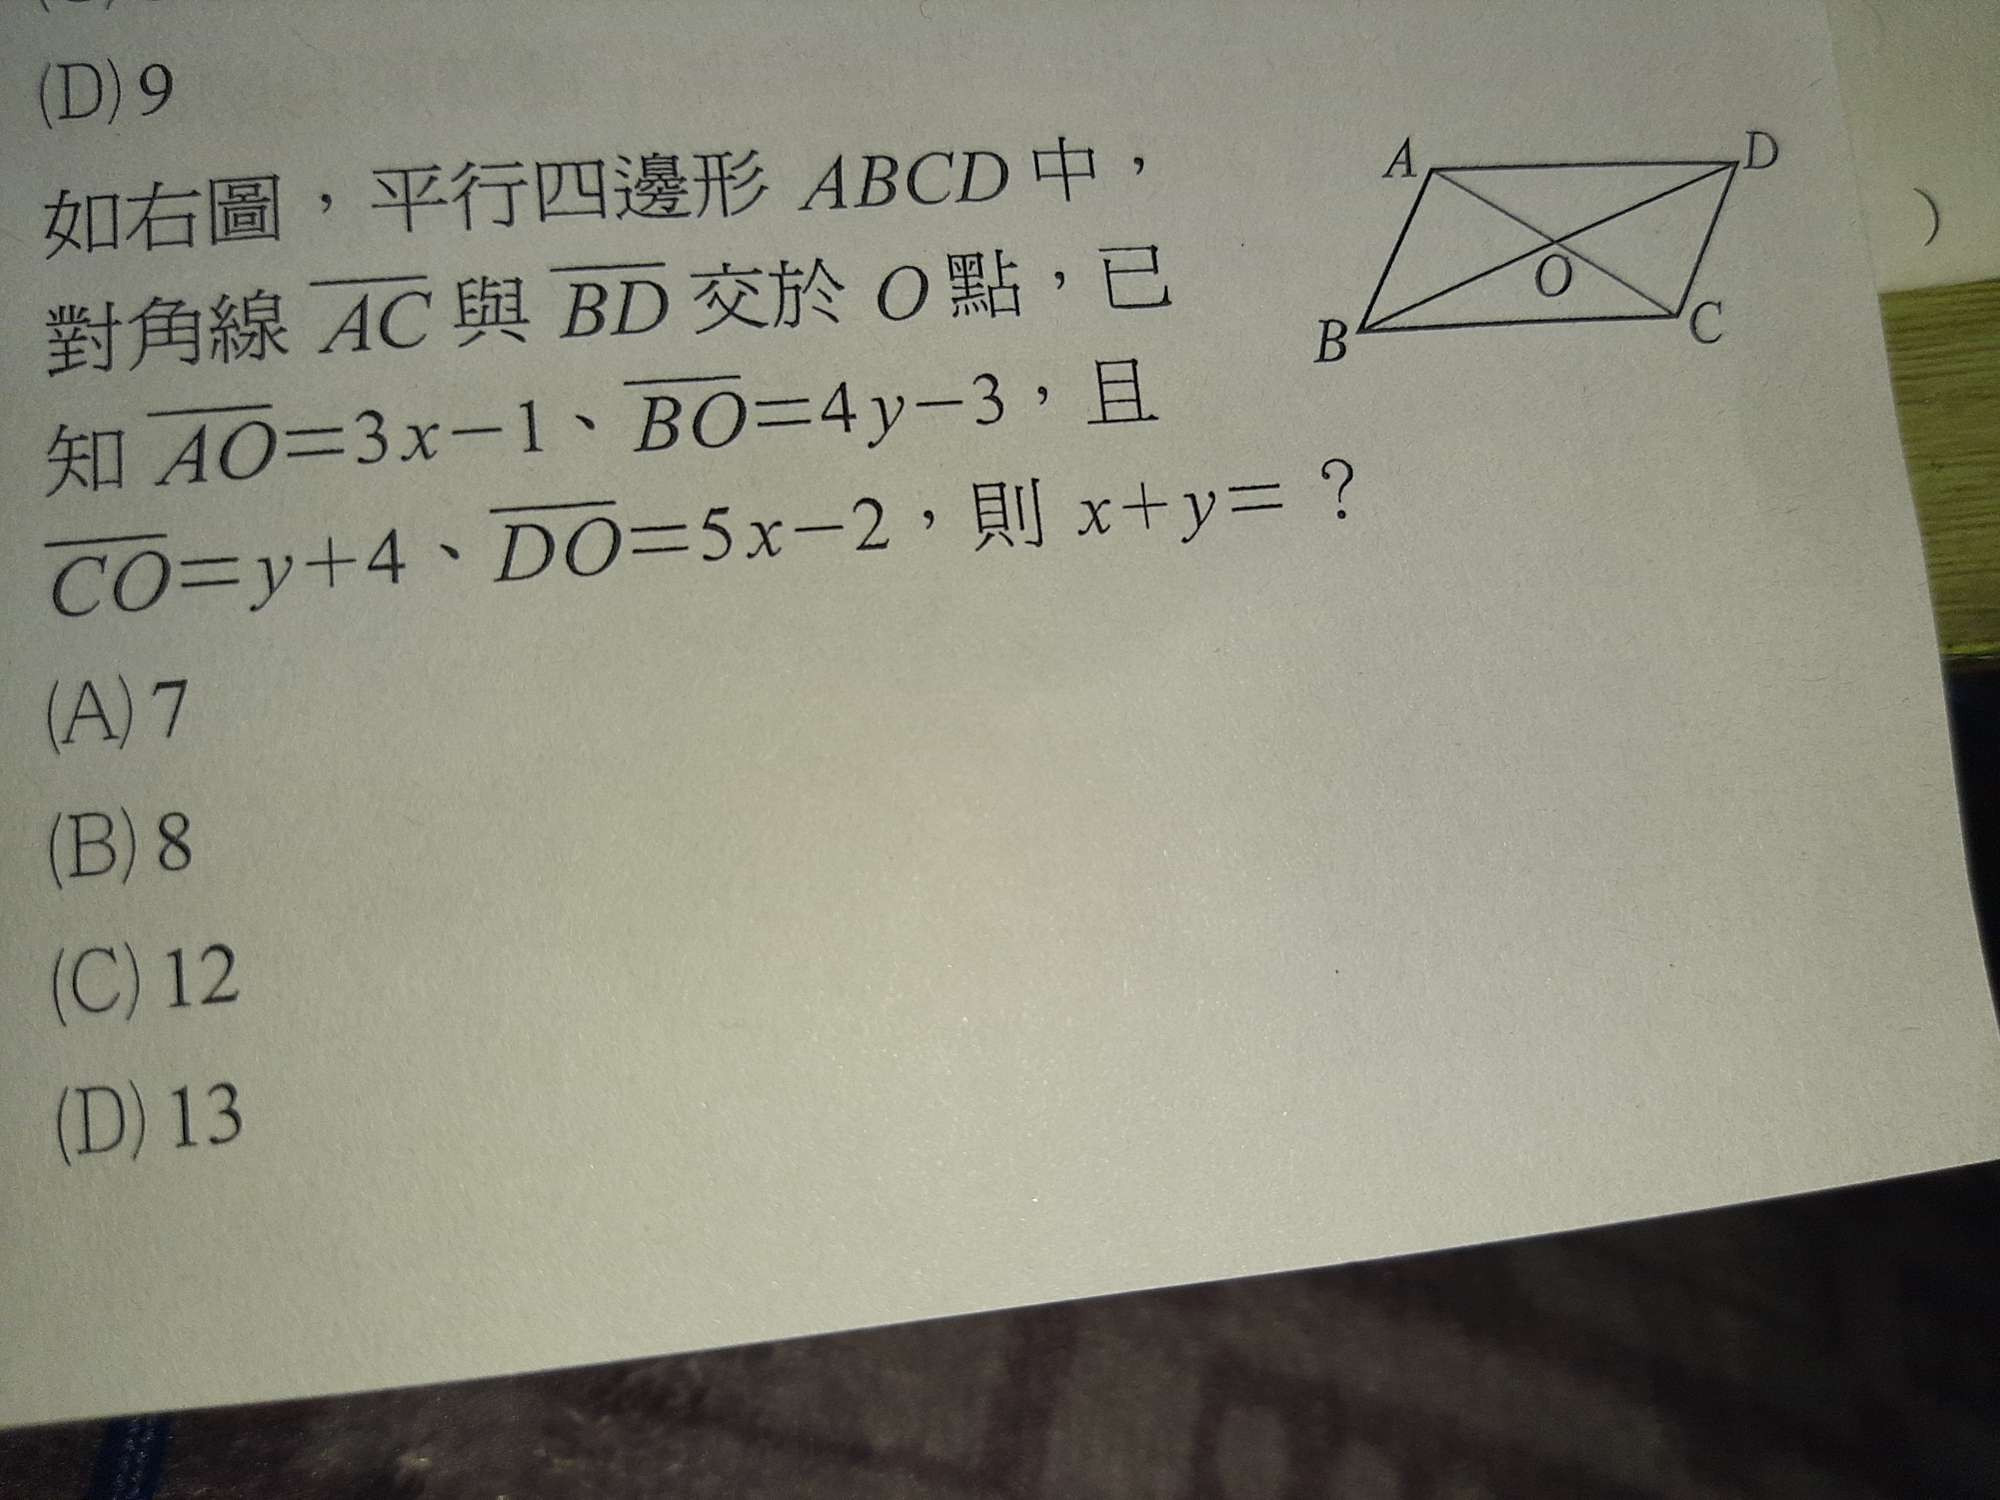 (D) 9
如右圖，平行四邊形 ABCD 中，
對角線 AC 與 BD 交於 O 點，已
知 AO=3x−1、BO=4y−3，且
CO=y+4、DO=5x−2，則 x+y=？
(A) 7
(B) 8
(C) 12
(D) 13
A
D
O
B
C
)